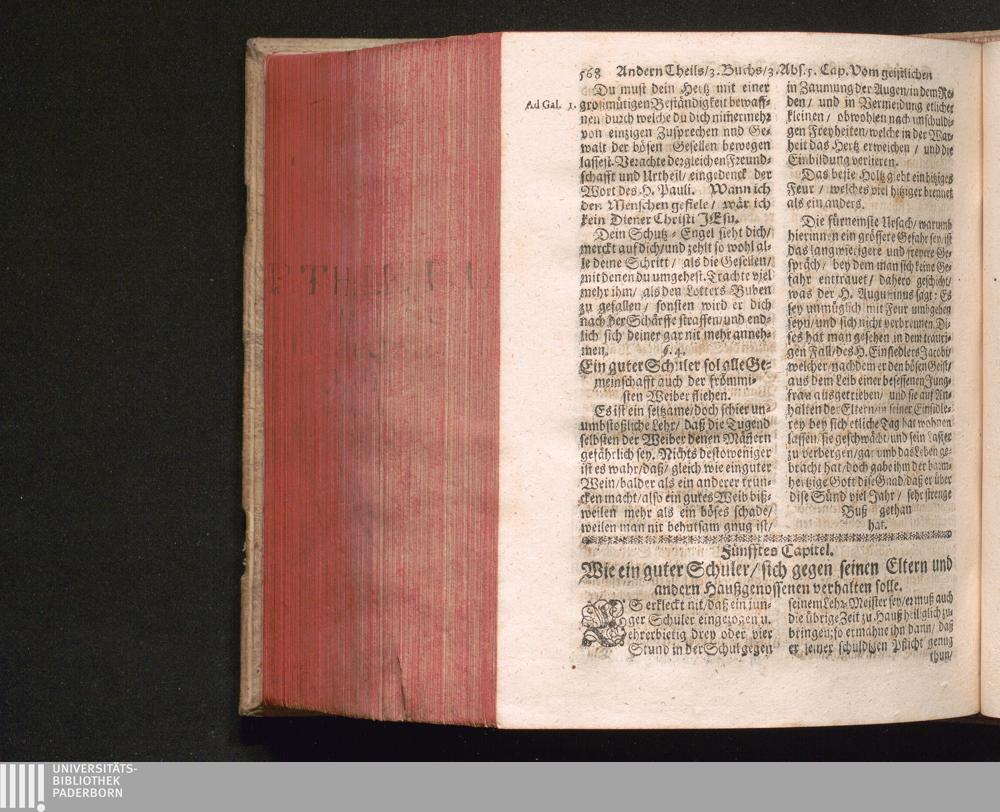 568 Andern Theils/3. Buchs/3. Abs. 5. Cap. Vom geistlichen
Du must dein Hertz mit einer
Ad Gal. 1.
großmütigen Beständigkeit bewaff-
nen/durch welche du dich nimmermehr
von einzigen Zusprechen nnd Ge-
walt der bösen Gesellen bewegen
lassest. Verachte dergleichen Freund-
schafft und Urtheil/ eingedenck der
Wort des H. Pauli. Wann ich
den Menschen gefiele / wär ich
kein Diener Christi JEsu.
Dein Schutz-Engel sieht dich/
merckt auf dich/und zehlt so wohl al-
le deine Schritt/ als die Gesellen/
mit denen du umgehest. Trachte viel
mehr ihm/ als den Lotters Buben
zu gefallen/ sonsten wird er dich
nach der Schärffe straffen/und end-
lich sich deiner gar nit mehr anneh-
men.
§. 4.
Ein guter Schuler sol alle Ge-
meinschafft auch der frömmi-
sten Weiber fliehen.
Es ist ein seltzame/doch schier un-
umbstoßliche Lehr/ daß die Tugend
selbsten der Weiber denen Männern
gefährlich sey. Nichts destoweniger
ist es wahr/daß/ gleich wie ein guter
Wein/balder als ein anderer trun-
cken macht/also ein gutes Weib biß-
weilen mehr als ein böses schade/
weilen man nit behutsam gnug ist/
in Zaumung der Augen/in dem Re-
den/ und in Vermeidung etlicher
kleinen / obwohlen nach unschuldi-
gen Freyheiten/welche in der War-
heit das Hertz erweichen / und die
Einbildung verlieren.
Das beste Holtz giebt ein hitziges
Feur / welches viel hitziger brennet
als ein anders.
Die fürnemste Ursach/ warumb
hierinnen ein grössere Gefahr sey/ist
das langwierigere und freyere Ge-
spräch / bey dem man sich keine Ge-
fahr entrauet/ dahero geschicht/
was der H. Augustinus sagt: Es
sey unmüglich mit Feur umbgeben
seyn/und sich nicht verbrennen. Di-
ses hat man gesehen in dem trauri-
gen Fall/des H. Einsiedlers Jacobi/
welcher/nachdem er den bösen Geist/
aus dem Leib einer besessenen Jung-
frau ausgetrieben/ und sie auf An-
halten de: Eltern/in seiner Einsidle-
rey bey sich etliche Tag hat wohnen
lassen/sie geschwächt/und sein Laster
zu verbergen/gar umb das Leben ge-
bracht hat/doch gabe ihm der barm-
hertzige Gott dise Gnad/daß er über
dise Sünd viel Jahr / sehr strenge
Buß gethan
hat.
Fünfftes Capitel.
Wie ein guter Schuler/ sich gegen seinen Eltern und
andern Haußgenossenen verhalten solle.
ES erkleckt nit/daß ein jun-
ger Schuler eingezogen u.
ehrerbietig drey oder vier
Stund in der Schul gegen
seinem Lehr-Meister sey/er muß auch
die übrige Zeit zu Hauß heiliglich zu-
bringen; so ermahne ihn dann/ daß
er seiner schuldigen Pflicht genug
thun/
UNIVERSITÄTS-
BIBLIOTHEK
PADERBORN